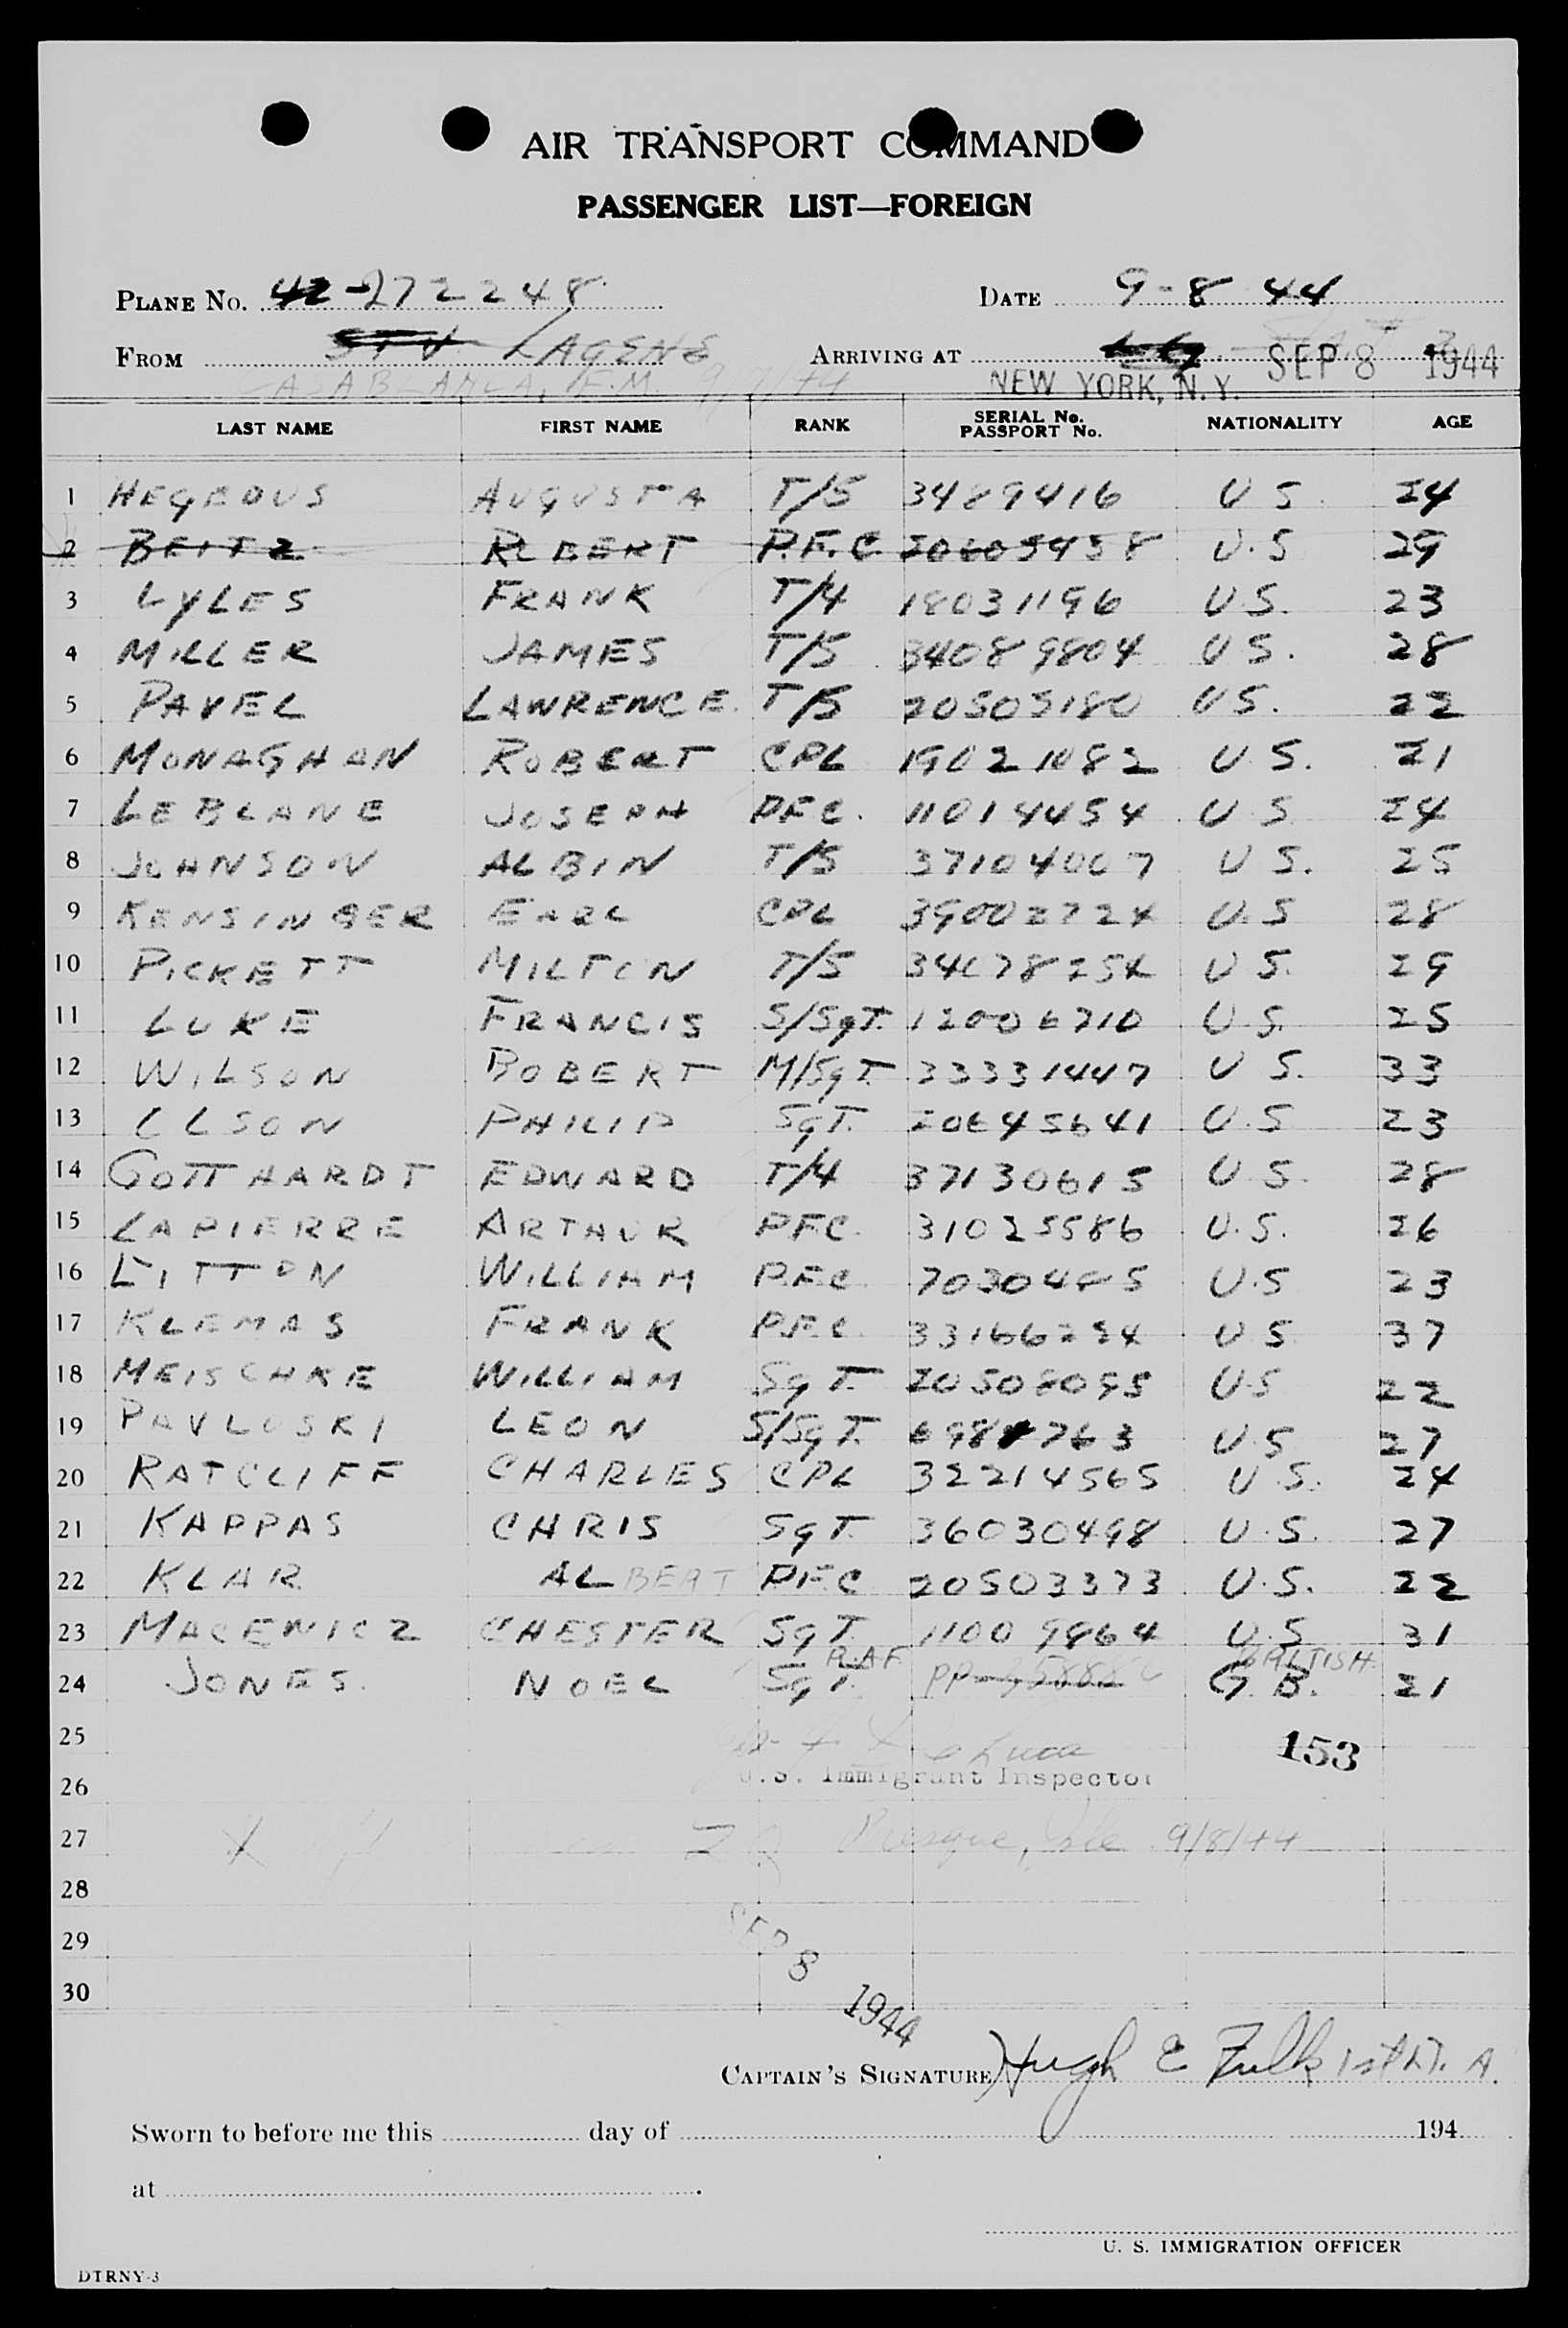 AIR TRANSPORT COMMAND
PASSENGER LIST—FOREIGN
PLANE No. 42-272248 DATE 9-8 44
FROM STV LAGENS ARRIVING AT SEP 8 1944
CASABLANCA, F.M. 9/7/44 NEW YORK, N.Y.
LAST NAME FIRST NAME RANK SERIAL No. PASSPORT No. NATIONALITY AGE
1 HEGEDUS AUGUSTA T/5 3489416 U S. 24
2 BEITZ ROBERT P.F.C. 20605458 U.S 29
3 LYLES FRANK T/4 18031196 U.S. 23
4 MILLER JAMES T/5 34089804 U S. 28
5 PAVEL LAWRENCE. T/5 20505180 U S. 22
6 MONAGHAN ROBERT CPL 19021082 U S. 21
7 LE BLANE JOSEPH PFC. 11014454 U S 24
8 JOHNSON ALBIN T/5 37104007 U S. 25
9 KENSINGER EARL CPL 39002724 U.S 28
10 PICKETT MILTON T/5 34078254 U S. 29
11 LUKE FRANCIS S/SgT. 12006710 U.S. 25
12 WILSON ROBERT M/SgT. 33331447 U S. 33
13 OLSON PHILIP SgT. 20645641 U.S 23
14 GOTTHARDT EDWARD T/4 37130615 U S. 28
15 LAPIERRE ARTHUR PFC. 31025586 U.S. 26
16 LITTON WILLIAM P.F.C. 7030485 U.S 23
17 KLEMAS FRANK P.F.C. 33166234 U S 37
18 MEISCHKE WILLIAM SgT. 20508095 U.S 22
19 PAVLOSKI LEON S/SgT. 6988763 U.S 27
20 RATCLIFF CHARLES CPL 32214565 U.S. 24
21 KAPPAS CHRIS SgT. 36030498 U.S. 27
22 KLAR ALBERT PFC 20503373 U.S. 22
23 MACEWICZ CHESTER SgT. 11009864 U.S 31
R.A.F. BRITISH
24 JONES. NOEL SgT. PP G. B. 21
25 153
26 U.S. Immigrant Inspector
27 Presque, Isle 9/8/44
28
29 SEP 8 1944
30
CAPTAIN'S SIGNATURE Hugh E Fulk 1st Lt. A.
Sworn to before me this day of 194
at
U. S. IMMIGRATION OFFICER
DTRNY-3